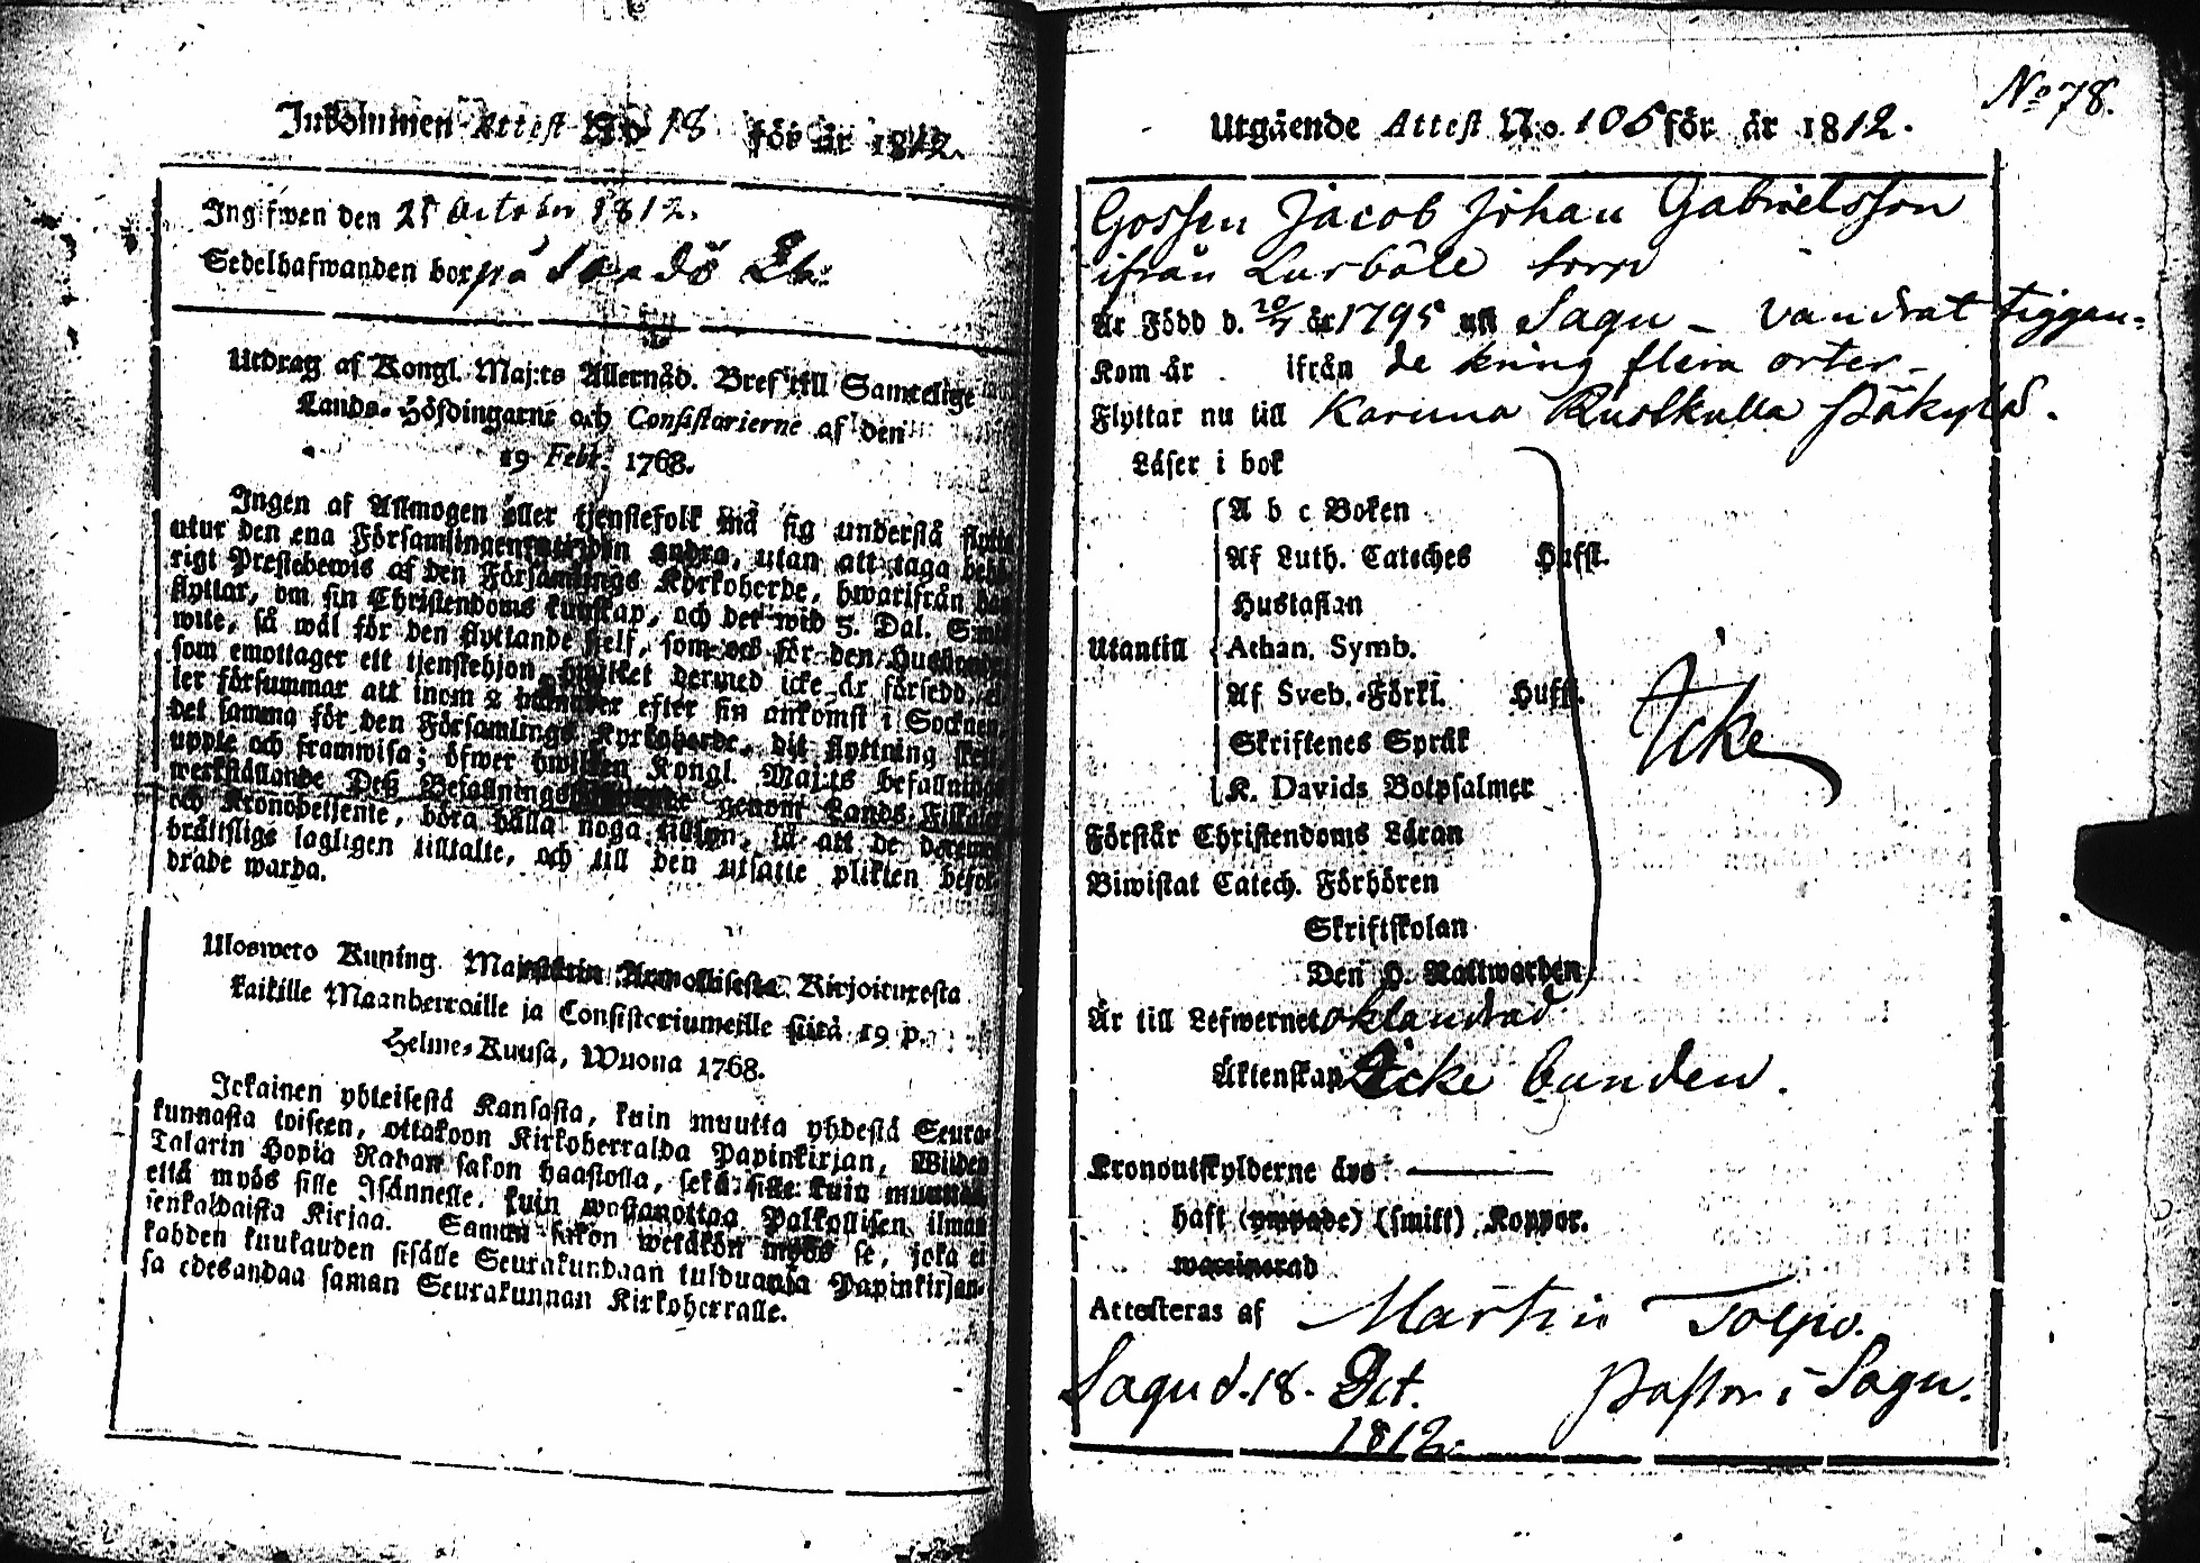 Inkommen Attest No 78 för år 1812.
Ingifwen den 25 October 1812.
Sedelhafwanden bor på Sandö
Utdrag af Kongl. Maj:ts Allernåd. Bref till Samtelige
Lands-Höfdingarne och Consistorierne af den
19 Febr. 1768.
Ingen af Allmogen eller tjenstefolk må sig understå flytta
utur den ena Församlingen andra, utan att taga behö-
rigt Prestebewis af den Församlings Kyrkoherde, hwarifrån han
flyttar, om sin Christendoms kunskap, och det wid 5. Dal. Smts
wite, så wäl för den flyttande sjelf, som och för den Husbonde
som emottager ett tjenstehjon, hwilket dermed icke är försedd, el-
ler försummar att inom 2 månader efter sin ankomst i Socknen
det samma för den Församlings Kyrkoherde, dit flyttning sker,
uppte och framwisa; öfwer hwilken Kongl. Maj:ts befallnings
werkställande Deß Befallnings genom Lands Fiskaler
och Kronobetjente, böra hålla noga tillsyn, så att de
bräftslige lagligen tilltalte, och till den utsatte plikten befor-
drade warda.
Uloswето Kuning. Majestetin Armollisesta Kirjoituxesta
kaikille Maanherroille ja Consistoriumeille siitä 19 p.
Helme-Kuusa, Wuona 1768.
Ickainen yhteisestä Kansasta, kuin muutta yhdestä Seura-
kunnasta toiseen, ottakoon Kirkoherralda Papinkirjan, Wiiden
Talarin Hopia Rahan sakon haastolla, sekä sille kuin muutta
että myös sille Isännelle, kuin wastanottaa Palkollisen ilman
senkaldaista Kirjaa. Saman sakon wetäkön myös se, joka ei
kahden kuukauden sisälle Seurakundaan tulduansa Papinkirjan-
sa edesandaa saman Seurakunnan Kirkoherralle.
No 78.
Utgående Attest N:o. 105 för år 1812.
Gossen Jacob Johan Gabrielsson
ifrån Lurböle torp
Är Född d. 20/7 år 1795 uti Sagu - vandrat tiggan-
Kom år ifrån de kring flera orter -
Flyttar nu till Karuna Rustkulla Påkylä.
Läser i bok
A b c Boken
Af Luth. Cateches Hufst.
Hustaflan
Utantill Athan. Symb.
Af Sveb. Förkl. Hufst.
Icke
Skriftenes Språk
K. Davids Botpsalmer
Förstår Christendoms Läran
Biwistat Catech. Förhören
Skriftskolan
Den H. Nattwarden
Är till Lefwernet oklandrad
Äktenskap Icke bunden.
Kronoutskylderne äro
haft (ympade) (smitt) Koppor.
waccinerad
Attesteras af Martin Tolpo.
Sagu d. 18. Oct. Pastor i Sagu.
1812.